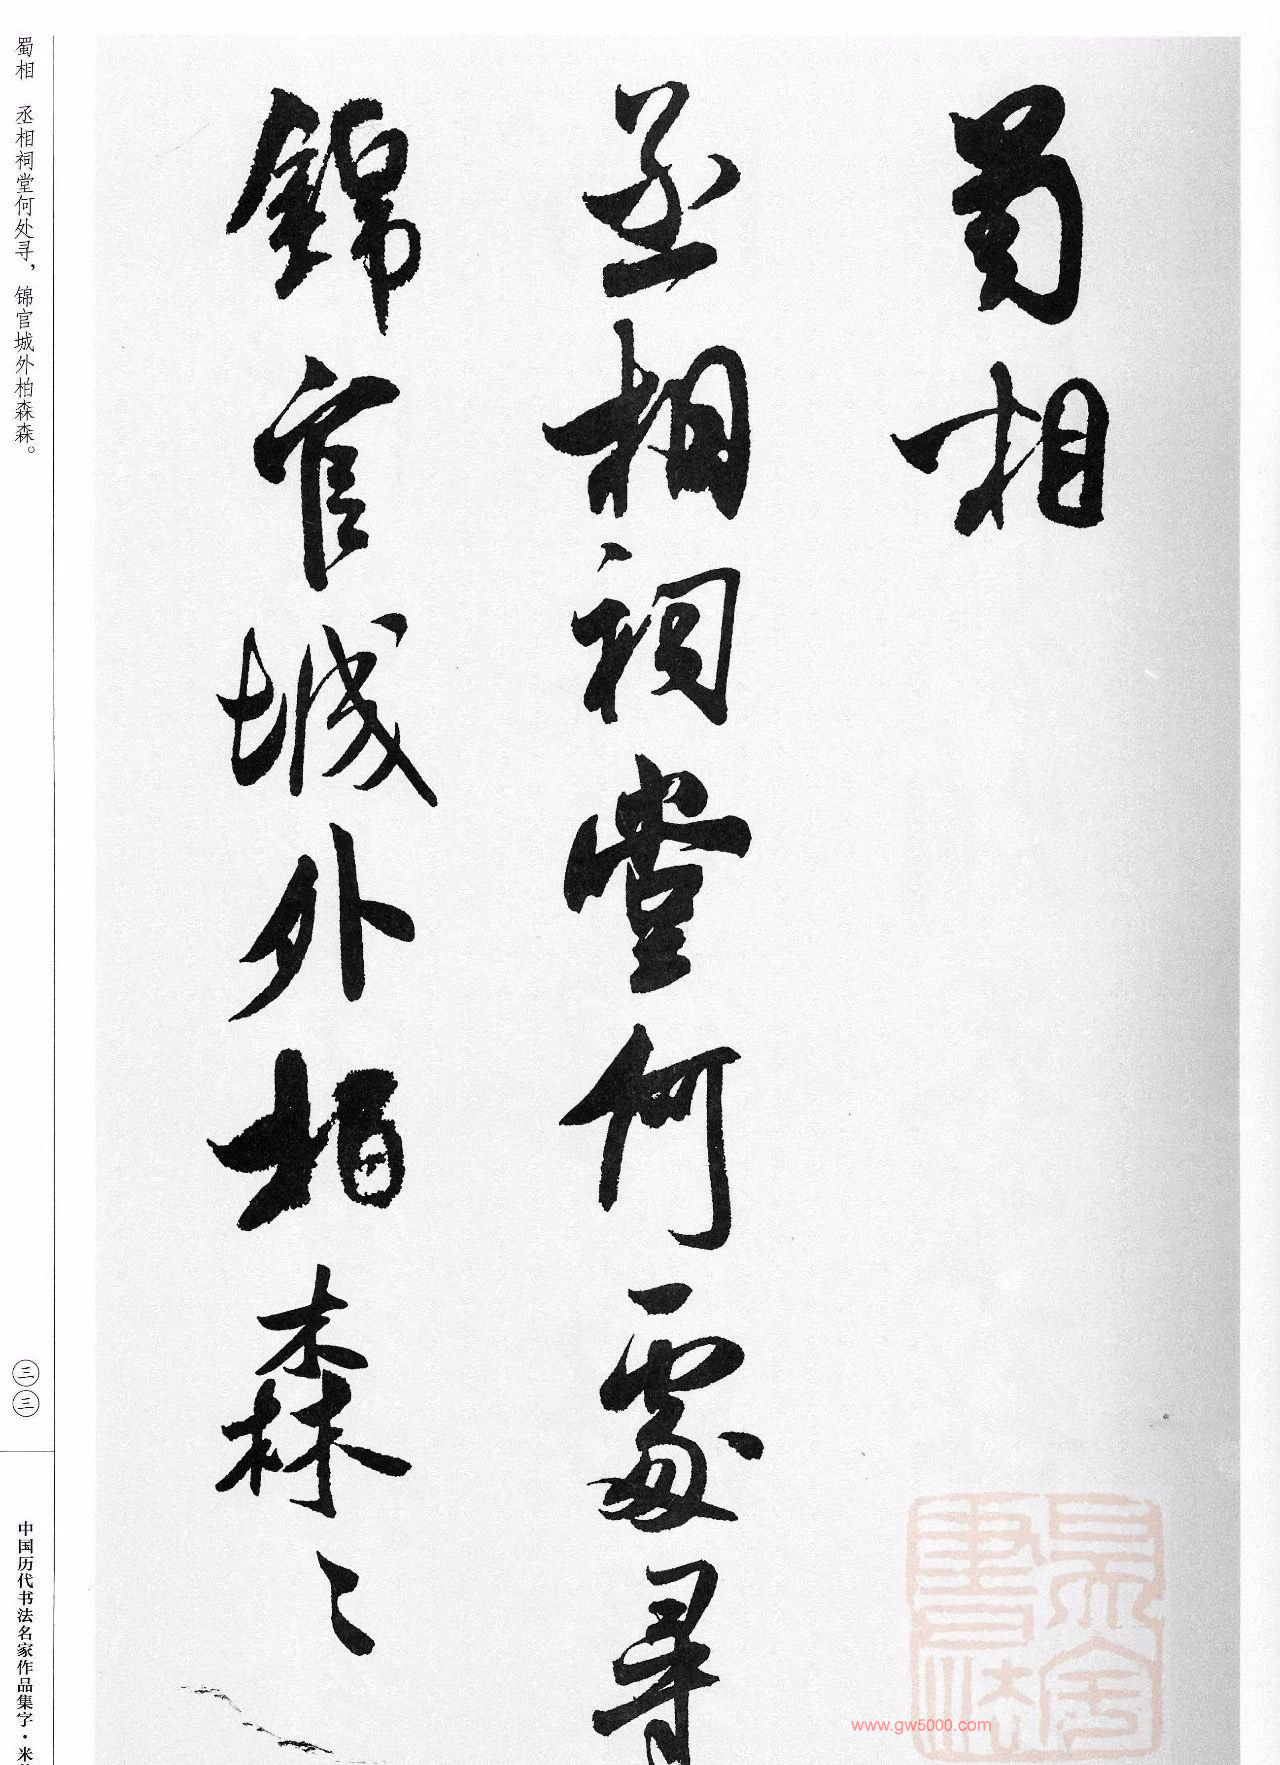 蜀相
丞相祠堂何處尋
錦官城外柏森〻
蜀相　丞相祠堂何处寻，锦官城外柏森森。
三三
中国历代书法名家作品集字·米
www.gw5000.com